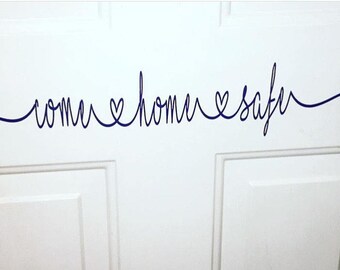 come home safe